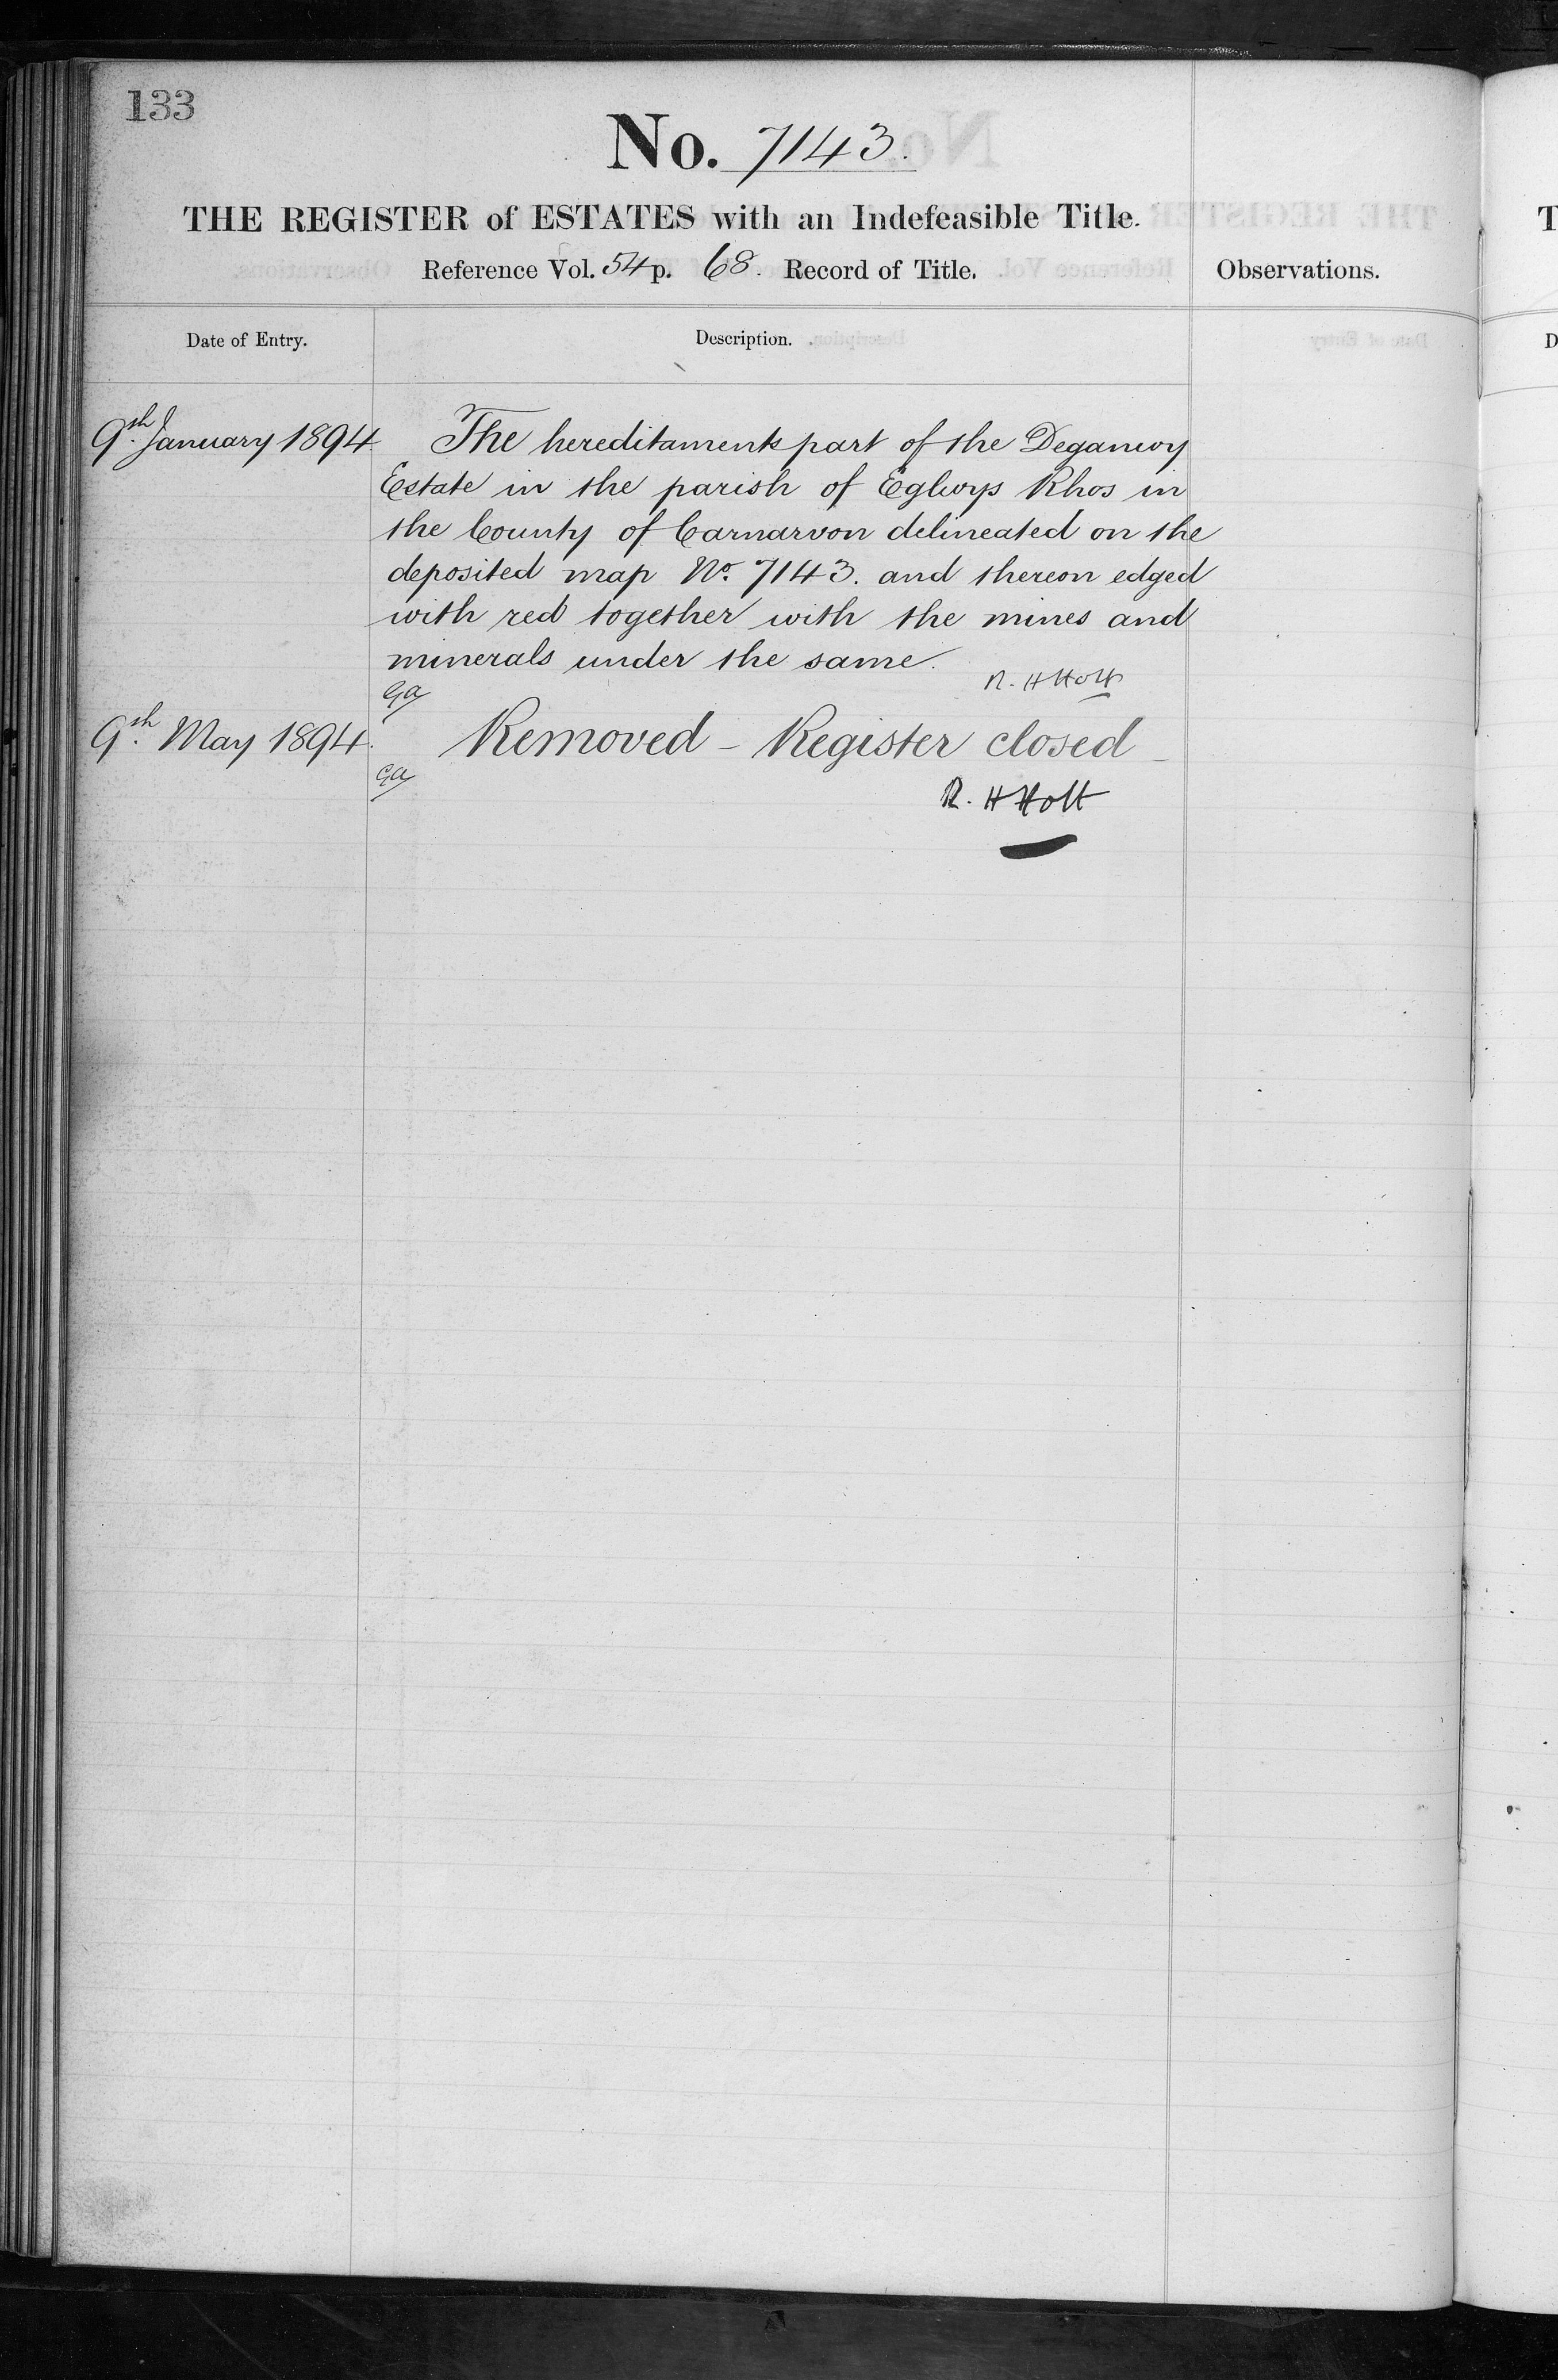 133
No. 7143.
THE REGISTER of ESTATES with an Indefeasible Title.
Reference Vol. 54 p. 68. Record of Title.
Observations.
Date of Entry.
Description.
9th January 1894.
The hereditaments part of the Deganwy
Estate in the parish of Eglwys Rhos in
the County of Carnarvon delineated on the
deposited map No. 7143. and thereon edged
with red together with the mines and
minerals under the same.
R. H Holt
9th May 1894.
Removed – Register closed –
R. H Holt